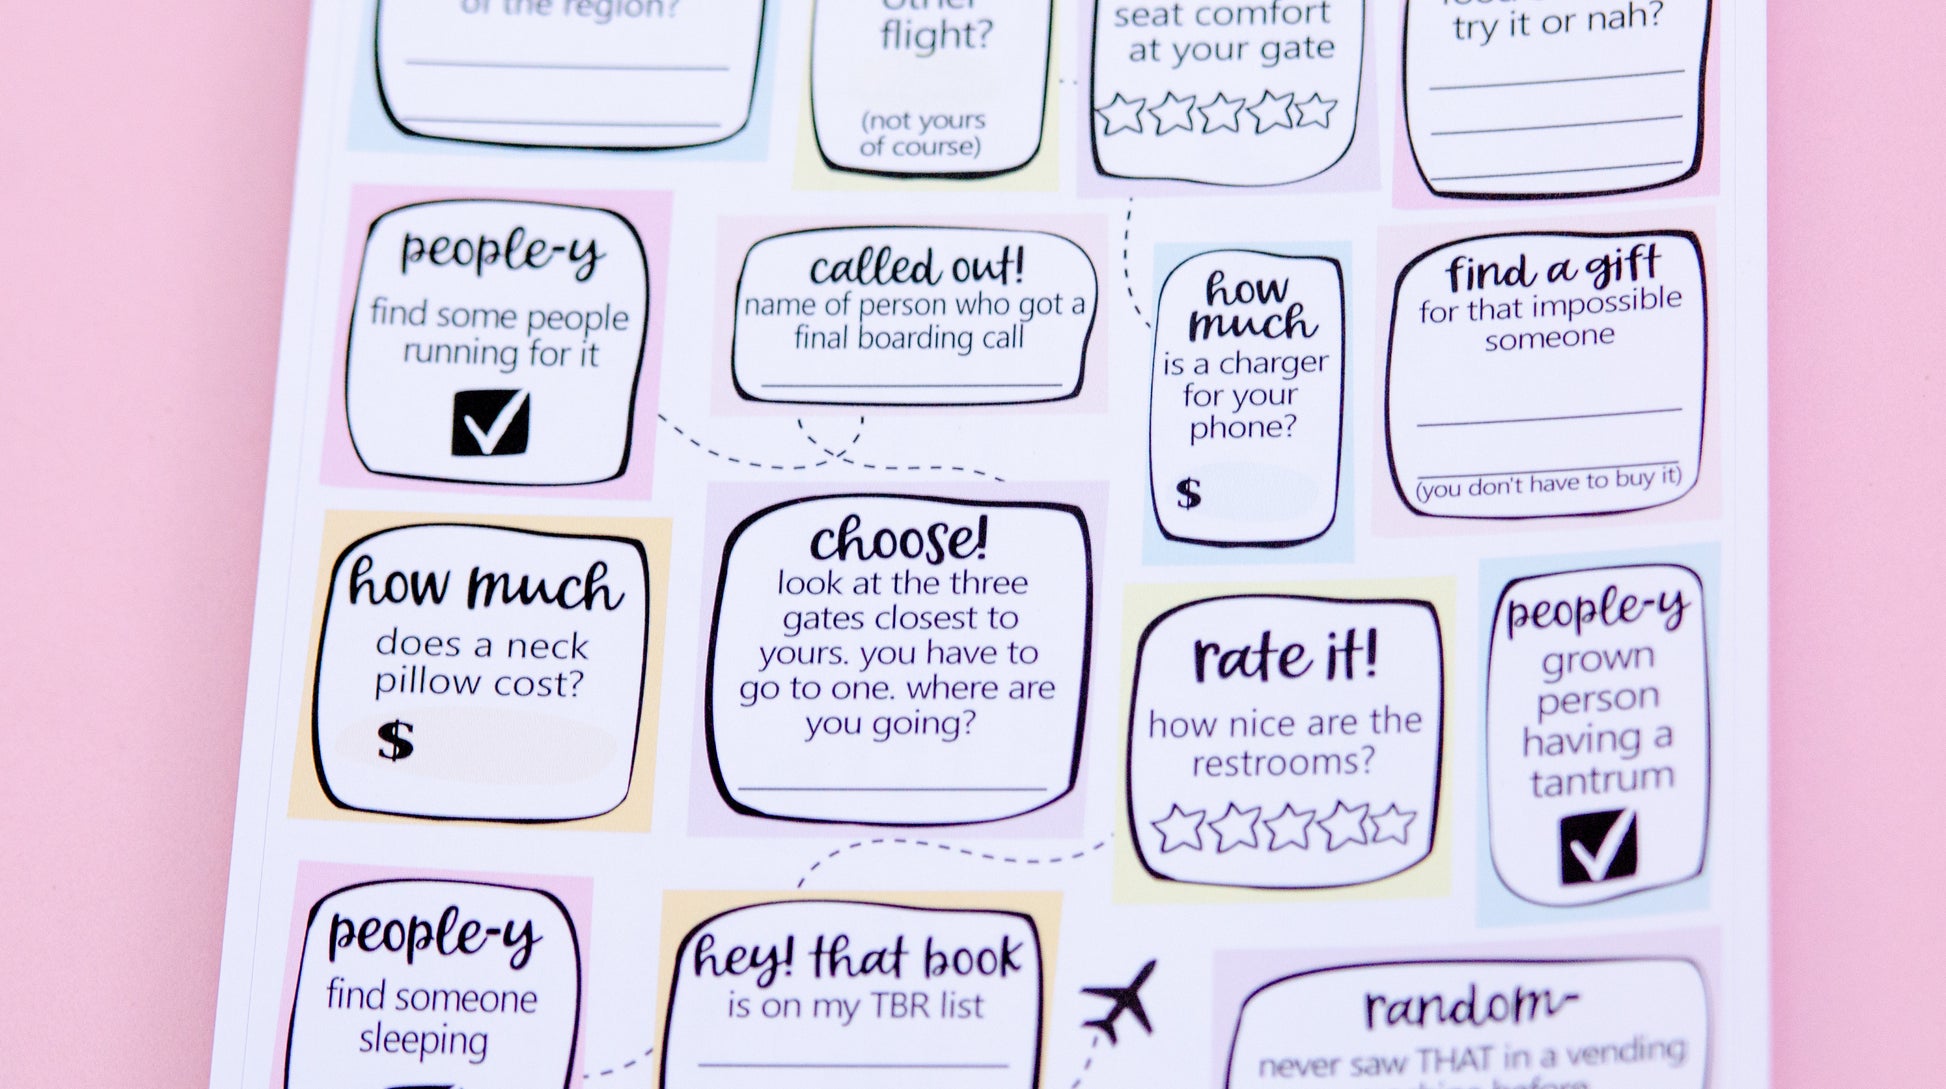 of the region?
other
flight?
(not yours
of course)
seat comfort
at your gate
try it or nah?
people-y
find some people
running for it
called out!
name of person who got a
final boarding call
how
much
is a charger
for your
phone?
$
find a gift
for that impossible
someone
(you don't have to buy it)
how much
does a neck
pillow cost?
$
choose!
look at the three
gates closest to
yours. you have to
go to one. where are
you going?
rate it!
how nice are the
restrooms?
people-y
grown
person
having a
tantrum
people-y
find someone
sleeping
hey! that book
is on my TBR list
random-
never saw THAT in a vending